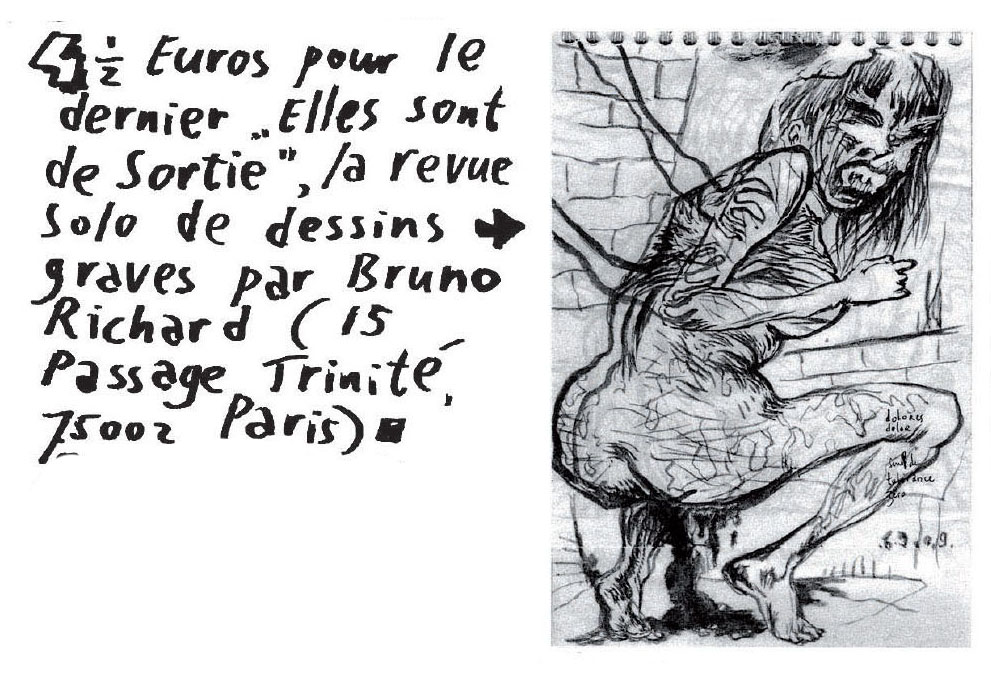 4 1/2 Euros pour le
dernier „Elles sont
de Sortie", la revue
solo de dessins ➔
graves par Bruno
Richard (15
Passage Trinité,
75002 Paris) ■
dolores
dolor
tolerance
zero